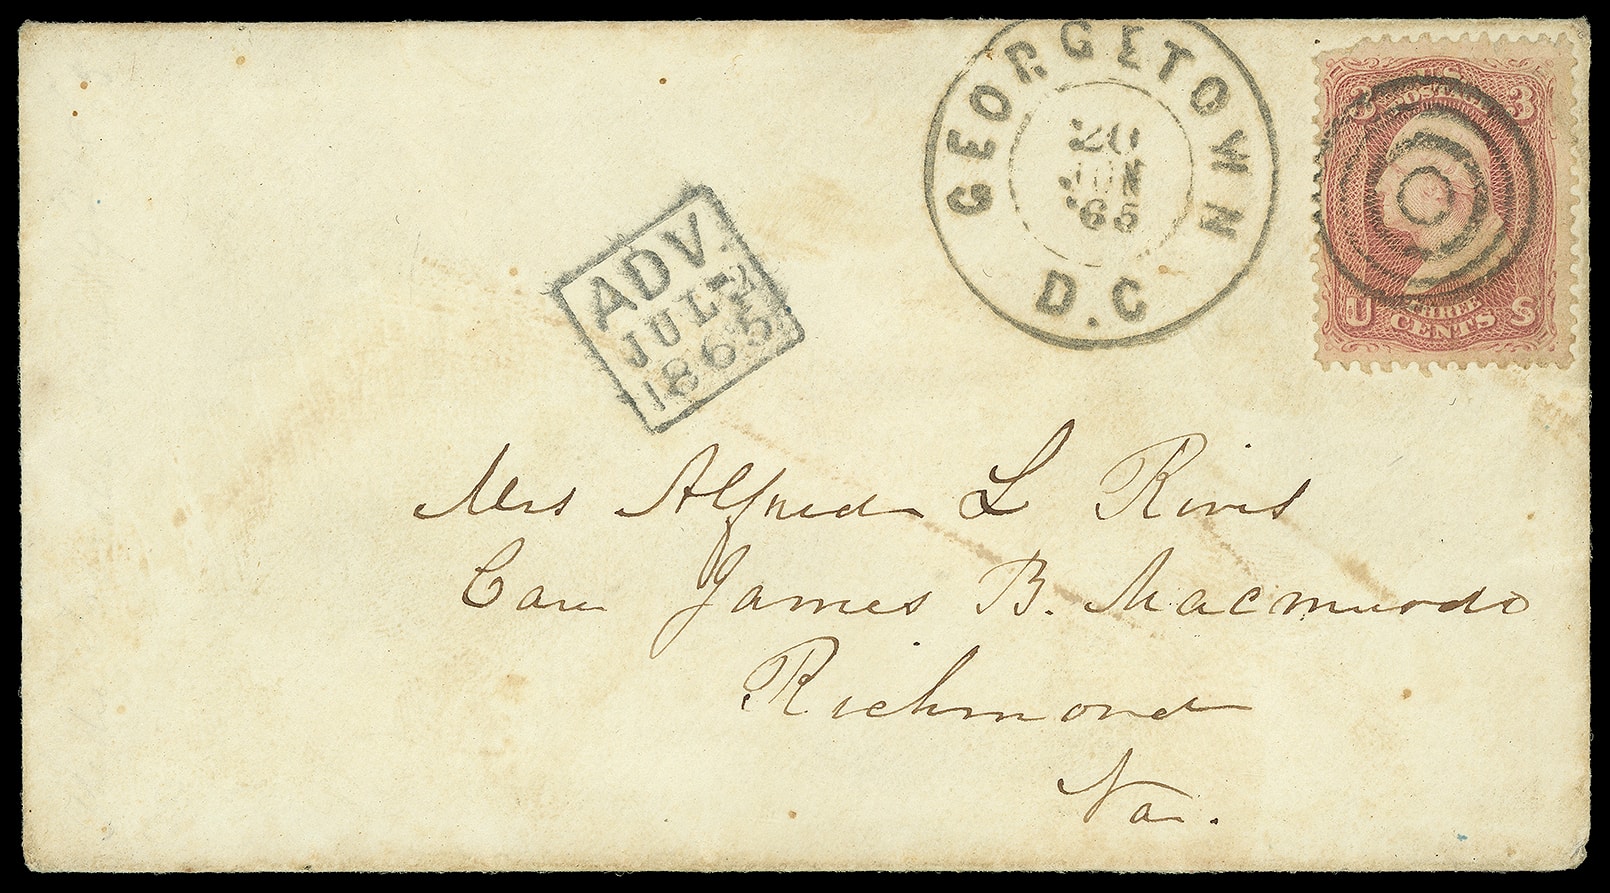 GEORGETOWN
20
JUN
'65
D.C
3 U.S. 3
POSTAGE
U THREE S
CENTS
ADV.
JUL-2
1865
Mrs Alfred L Rives
Care James B. Macmurdo
Richmond
Va.